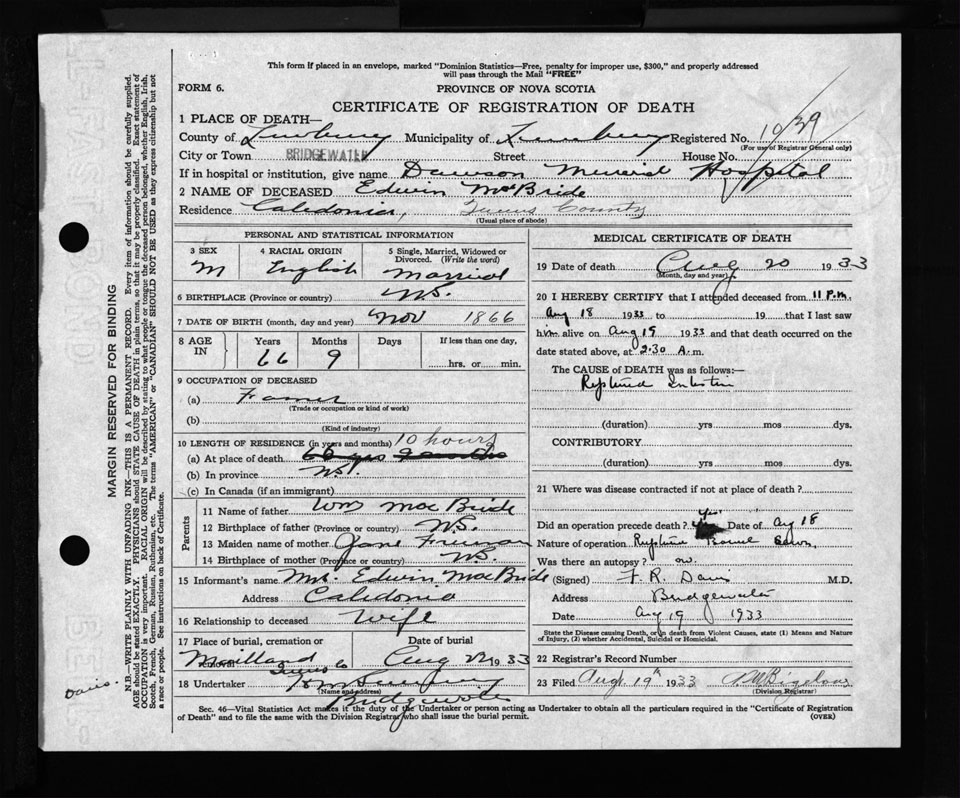 This form if placed in an envelope, marked "Dominion Statistics—Free, penalty for improper use, $300," and properly addressed
will pass through the Mail "FREE"
FORM 6. PROVINCE OF NOVA SCOTIA
CERTIFICATE OF REGISTRATION OF DEATH
1 PLACE OF DEATH—
County of Lunenburg Municipality of Lunenburg Registered No. 10/39
(For use of Registrar General only)
City or Town BRIDGEWATER Street House No.
If in hospital or institution, give name Dawson Memorial Hospital
2 NAME OF DECEASED Edwin MacBride
Residence Caledonia, Queens County
(Usual place of abode)
PERSONAL AND STATISTICAL INFORMATION
3 SEX 4 RACIAL ORIGIN 5 Single, Married, Widowed or
Divorced. (Write the word)
M English Married
6 BIRTHPLACE (Province or country) N.S.
7 DATE OF BIRTH (month, day and year) Nov 1866
8 AGE IN Years Months Days If less than one day,
66 9 hrs. or min.
9 OCCUPATION OF DECEASED
(a) Farmer
(Trade or occupation or kind of work)
(b)
(Kind of industry)
10 LENGTH OF RESIDENCE (in years and months) 10 hours
(a) At place of death
(b) In province N.S.
(c) In Canada (if an immigrant)
Parents
11 Name of father Wm MacBride
12 Birthplace of father (Province or country) N.S.
13 Maiden name of mother Jane Freeman
14 Birthplace of mother (Province or country) N.S.
15 Informant's name Mrs. Edwin MacBride
Address Caledonia
16 Relationship to deceased Wife
17 Place of burial, cremation or Date of burial
removal Queens Co Aug 22 1933
18 Undertaker
(Name and address)
Bridgewater
MEDICAL CERTIFICATE OF DEATH
19 Date of death Aug 20 1933
(Month, day and year)
20 I HEREBY CERTIFY that I attended deceased from 11 P.M.
Aug 18 1933 to 19 that I last saw
him alive on Aug 19 1933 and that death occurred on the
date stated above, at 2.30 A.m.
The CAUSE OF DEATH was as follows:—
Ruptured Intestine
(duration) yrs mos dys.
CONTRIBUTORY
(duration) yrs mos dys.
21 Where was disease contracted if not at place of death?
Did an operation precede death? Yes Date of Aug 18
Nature of operation Rupture Bowel Sewn.
Was there an autopsy? no.
(Signed) F. R. Davis M.D.
Address Bridgewater
Date Aug 19 1933
State the Disease causing Death, or in death from Violent Causes, state (1) Means and Nature
of Injury, (2) whether Accidental, Suicidal or Homicidal.
22 Registrar's Record Number
23 Filed Aug. 19th 1933
(Division Registrar)
Sec. 46—Vital Statistics Act makes it the duty of the Undertaker or person acting as Undertaker to obtain all the particulars required in the "Certificate of Registration
of Death" and to file the same with the Division Registrar who shall issue the burial permit. (OVER)
MARGIN RESERVED FOR BINDING
N.B.—WRITE PLAINLY WITH UNFADING INK—THIS IS A PERMANENT RECORD. Every item of information should be carefully supplied.
AGE should be stated EXACTLY. PHYSICIANS should state CAUSE OF DEATH in plain terms, so that it may be properly classified. Exact statement of
OCCUPATION is very important. RACIAL ORIGIN will be described by stating to what people or tongue the deceased person belonged, whether English, Irish,
Scotch, French, German, Russian, Ruthenian, etc. The terms "AMERICAN" or "CANADIAN" SHOULD NOT BE USED as they express citizenship but not
a race or people. See instructions on back of Certificate.
Davis.